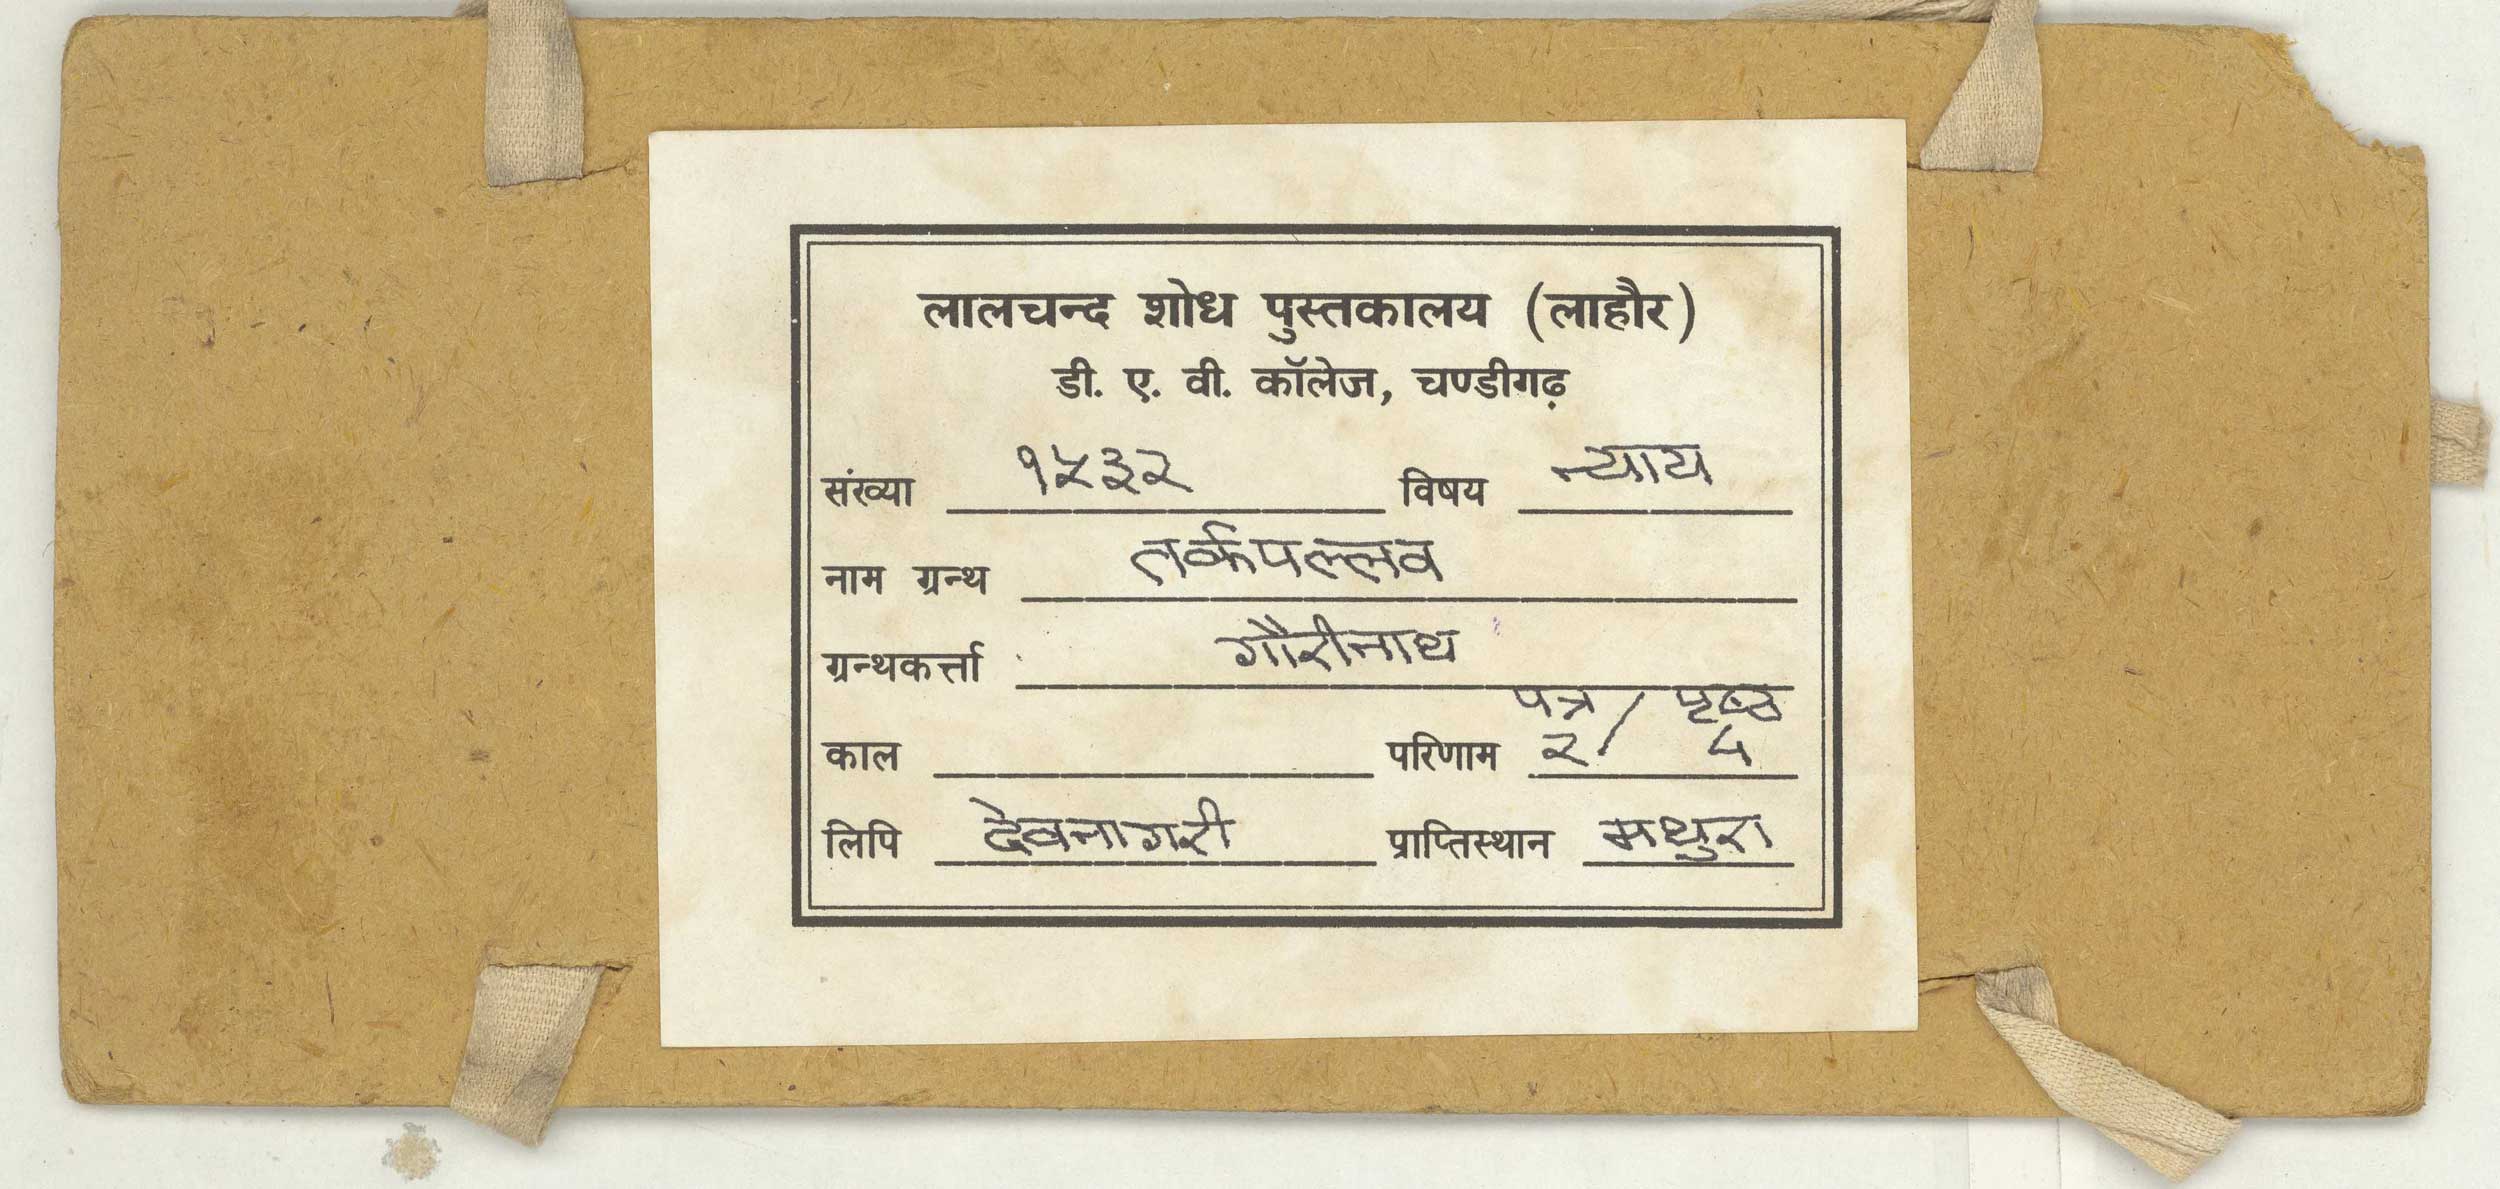 लालचन्द शोध पुस्तकालय (लाहौर)
डी. ए. वी. कॉलेज, चण्डीगढ़
संख्या १५३२ विषय न्याय
नाम ग्रन्थ तर्कपल्लव
ग्रन्थकर्त्ता गौरीनाथ
पत्र / पृष्ठ
काल परिणाम २ / ५
लिपि देवनागरी प्राप्तिस्थान मथुरा